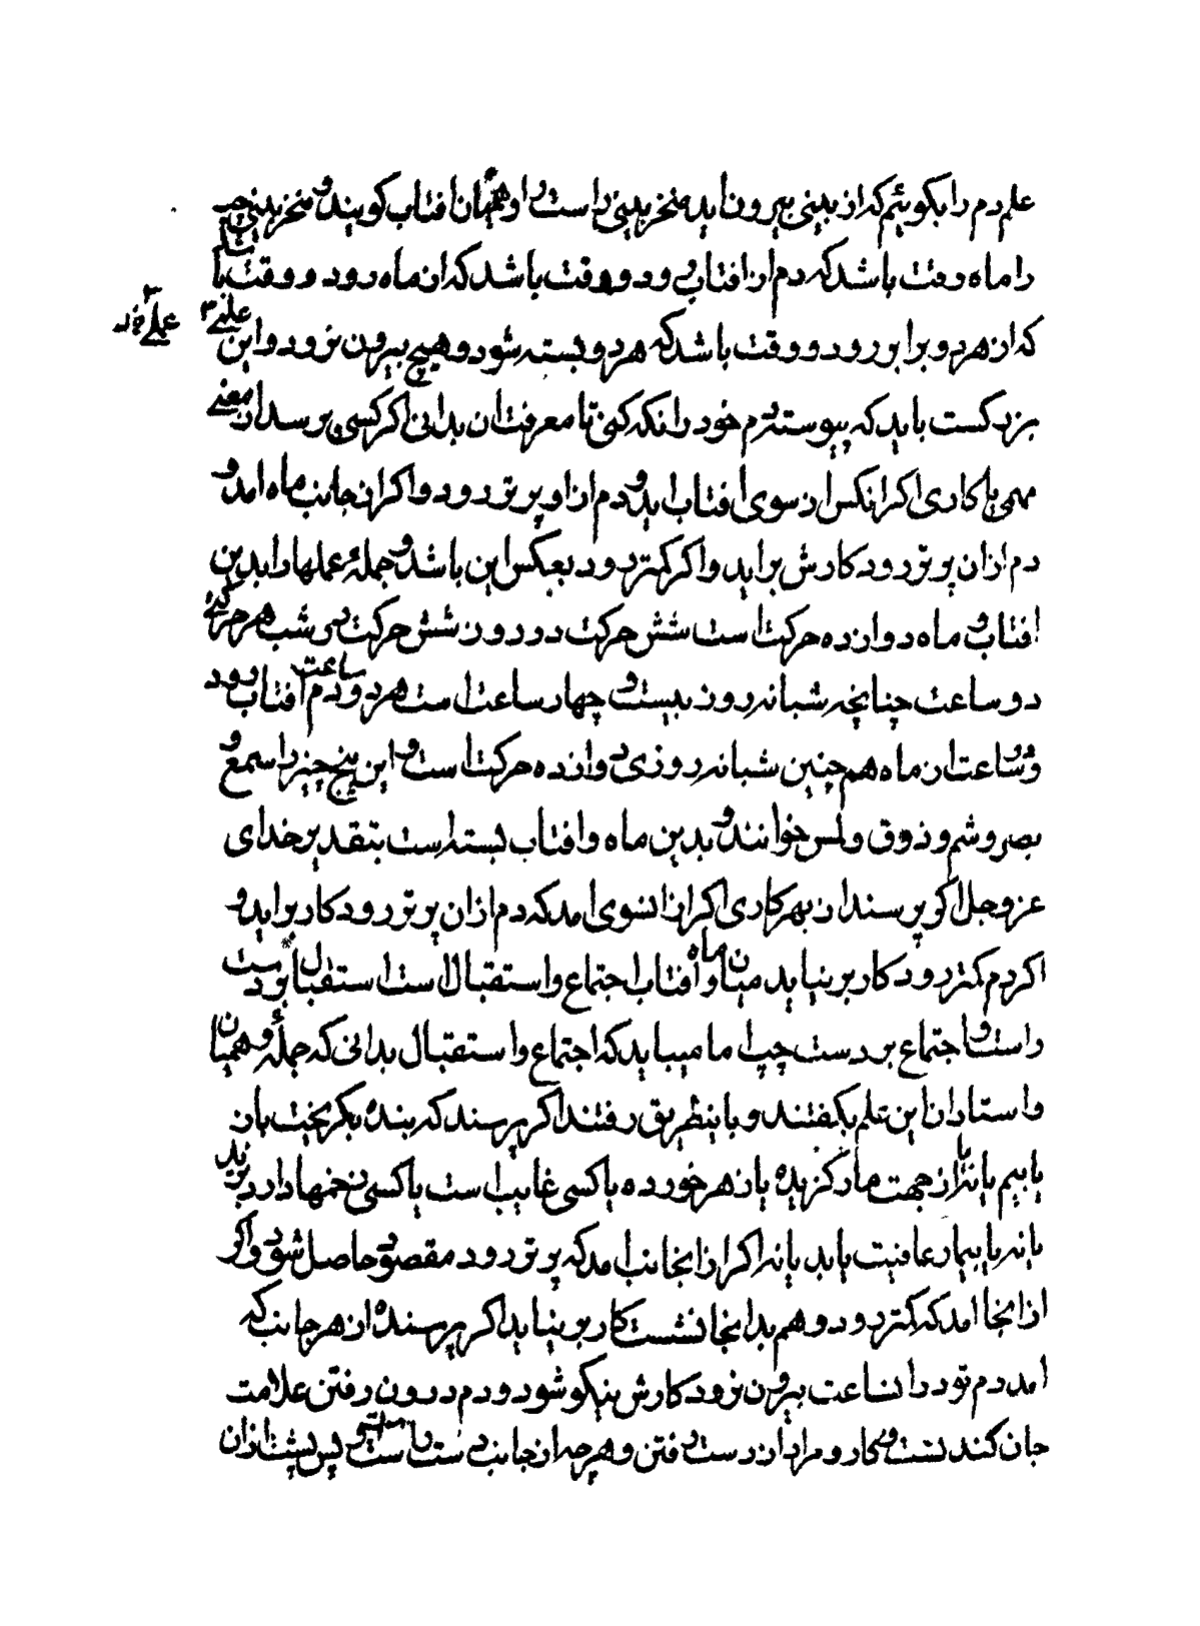 علم دم را بکوییم که از بینی بیرون اید منخر بینی راست را و همیان افتاب کویند و منخر بینی چپ
را ماه وقت باشد که دم از افتاب رود و وقت باشد که از ماه رود و وقت باشد
که از هر دو برابر رود و وقت باشد که هر دو بسته شود و هیچ بیرون نرود و این علمی
علمی
بزرکست باید که پیوسته دم خود را نکه کنی تا معرفت ان بدانی اکر کسی پرسد از معنی
مهمی یا کاری اکر انکس از سوی افتاب اید و دم از او پرتر رود و اکر از جانب ماه امد و
دم ازان پرتر رود کارش براید و اکر کمتر رود بعکس این باشد و جمله عملها را بدین
افتاب و ماه دوازده حرکت است شش حرکت در روز و شش حرکت در شب هر حرکتی
دو ساعت چنانچه شبانه روز بیست و چهار ساعت است هر دو ساعت دم افتاب رود
و دو ساعت از ماه هم چنین شبانه روزی دوازده حرکت است و این پنج چیز را سمع و
بصر و شم و ذوق و لمس خوانند و بدین ماه و افتاب بسته است بتقدیر خدای
عز و جل اکر پرسند از بهر کاری اکر از انسوی امد که دم ازان پرتر رود کار براید و
اکر دم کمتر رود کار بر نیاید میان ماه و افتاب اجتماع و استقبال است استقبال بر دست
راست و اجتماع بر دست چپ اما میباید که اجتماع و استقبال بدانی که جمله وهمیان
و استادان این علم بکفتند و باینطریق رفتند اکر پرسند که بنده بکریخت باز
یابیم یا نه یا از جهت مار کزیده یا زهر خورده یا کسی غایب است یا کسی زخمها دارد بزید
یا نه یا بیمار عافیت یابد یا نه اکر از انجانب امد که پرتر رود مقصود حاصل شود و اکر
از انجا امد که کمتر رود و هم بدانجا نشست کار بر نیاید اکر پرسنده از هر جانب که
امد دم تو در انساعت بیرون نرود کارش نیکو شود و دم درون رفتن علامت
جان کندنست و کار و مراد از دست رفتن و هر چه از جانب دست راست است پس پشت ازان